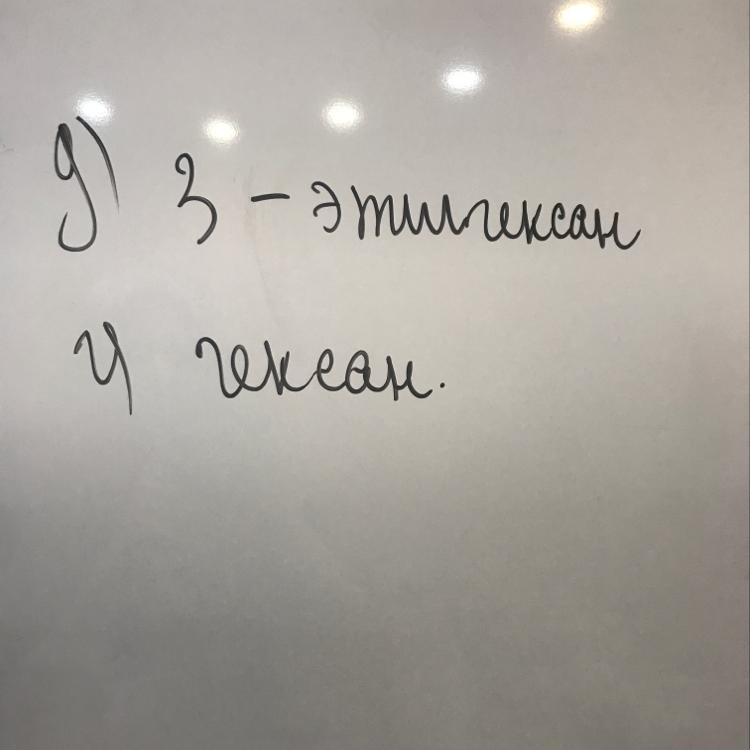 д) 3 - этилгексан
ч гексан.